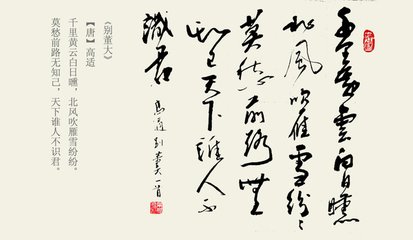 千里黄雲白日曛
北風吹雁雪紛〻
莫愁前路無
知己天下誰人不
識君
高適别董大一首
《别董大》
【唐】高适
千里黄云白日曛，北风吹雁雪纷纷。
莫愁前路无知己，天下谁人不识君。